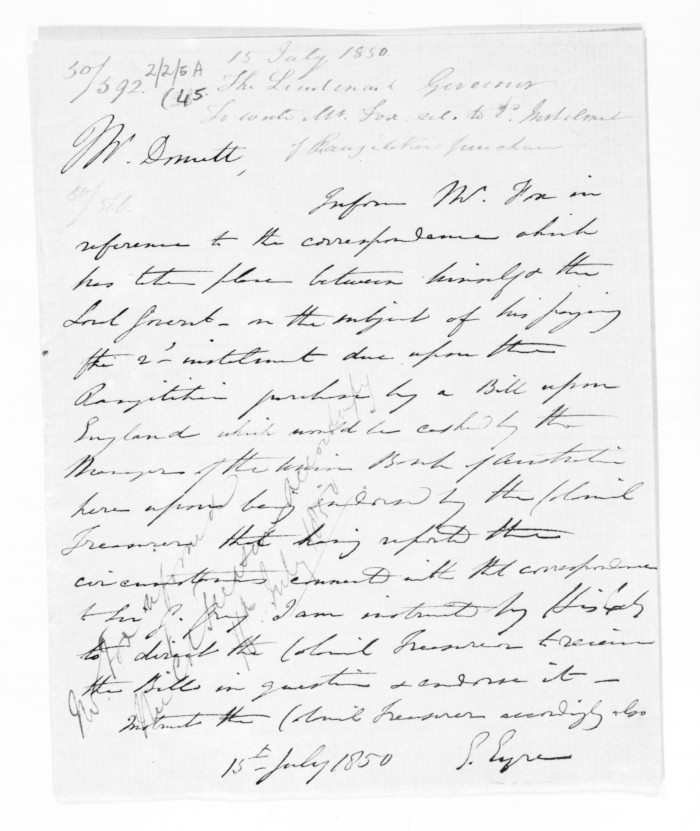 15 July 1850.
50/392. 2/2/5A
(45.
The Lieutenant Governor
To write Mr. Fox rel. to 2d. Instalment
of Rangitikei purchase
Mr. Domett,
50/
Inform Mr. Fox in
reference to the correspondence which
has taken place between himself & the
Local Govern't - on the subject of his paying
the 2d instalment due upon the
Rangitikei purchase by a Bill upon
England which would be cashed by the
Manager of the Union Bank of Australia
here upon being indorsed by the Colonial
Treasurer that having reported the
circumstances connected with that correspondence
to Sir G. Grey I am instructed by His Exly
to direct the Colonial Treasurer to receive
the Bills in question & endorse it -
Instruct the Colonial Treasurer accordingly also
15th July 1850 E. Eyre
Mr. Fox informed
Col. Treasurer accordingly
July 1850